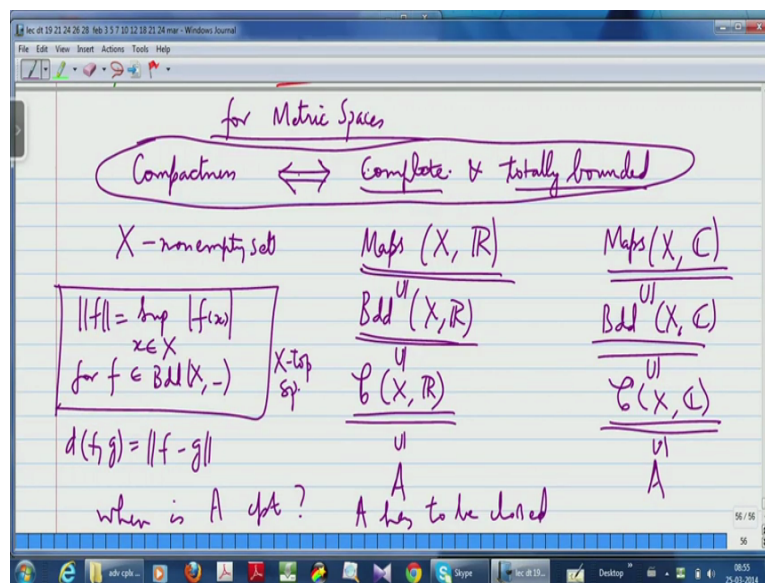 lec dt 19 21 24 26 28 feb 3 5 7 10 12 18 21 24 mar - Windows Journal
File Edit View Insert Actions Tools Help
for Metric Spaces
Compactness ⟺ Complete & totally bounded
X - nonempty set Maps (X, ℝ) Maps (X, ℂ)
∪| ∪|
||f|| = Sup |f(x)| Bdd (X, ℝ) Bdd (X, ℂ)
x ∈ X
for f ∈ Bdd (X, -) X-top ∪| ∪|
sp. 𝒞 (X, ℝ) 𝒞 (X, ℂ)
d(f, g) = ||f - g|| ∪| ∪|
A A
when is A cpt? A has to be closed
56 / 56
56
adv cplx ... Skype lec dt 19... Desktop » 08:55
25-03-2014